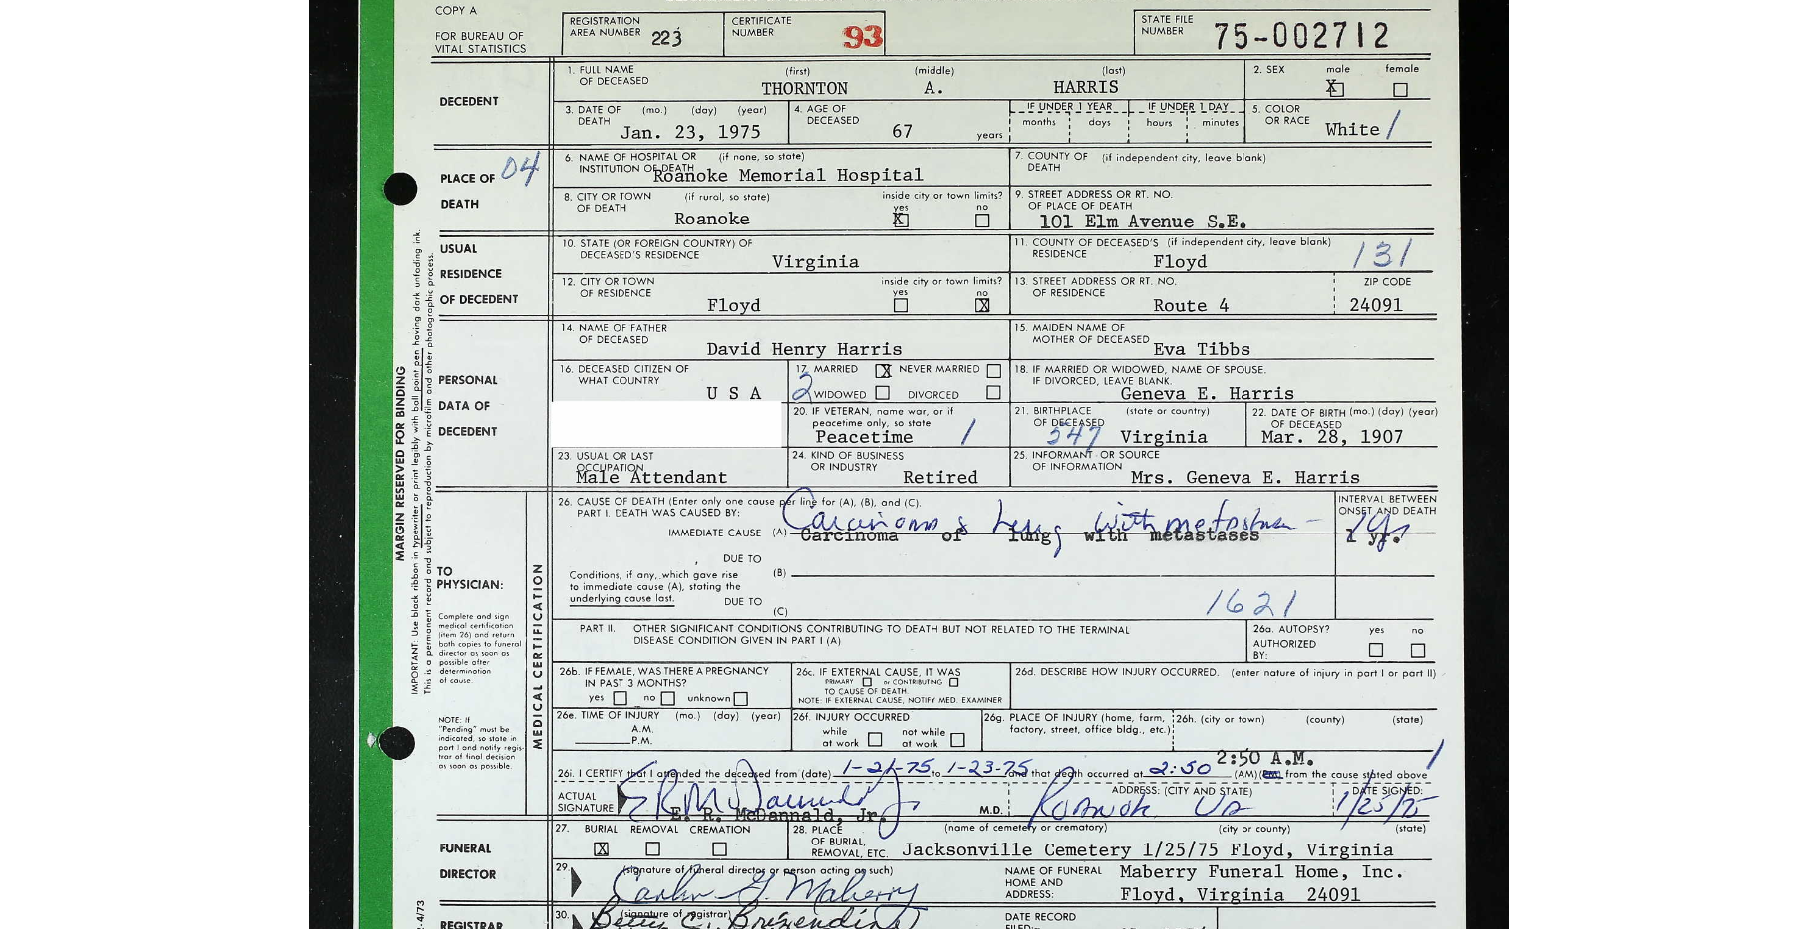 COPY A
FOR BUREAU OF
VITAL STATISTICS
REGISTRATION
AREA NUMBER 223
CERTIFICATE
NUMBER 93
STATE FILE
NUMBER 75-002712
DECEDENT
1. FULL NAME (first) (middle) (last)
OF DECEASED THORNTON A. HARRIS
2. SEX male female
X
3. DATE OF (mo.) (day) (year)
DEATH Jan. 23, 1975
4. AGE OF
DECEASED 67 years
IF UNDER 1 YEAR IF UNDER 1 DAY
months days hours minutes
5. COLOR
OR RACE White /
PLACE OF 04
DEATH
6. NAME OF HOSPITAL OR (if none, so state)
INSTITUTION OF DEATH
Roanoke Memorial Hospital
7. COUNTY OF (if independent city, leave blank)
DEATH
8. CITY OR TOWN (if rural, so state) inside city or town limits?
OF DEATH yes no
Roanoke X
9. STREET ADDRESS OR RT. NO.
OF PLACE OF DEATH
101 Elm Avenue S.E.
USUAL
RESIDENCE
OF DECEDENT
10. STATE (OR FOREIGN COUNTRY) OF
DECEASED'S RESIDENCE
Virginia
11. COUNTY OF DECEASED'S (if independent city, leave blank)
RESIDENCE Floyd 131
12. CITY OR TOWN inside city or town limits?
OF RESIDENCE yes no
Floyd X
13. STREET ADDRESS OR RT. NO. ZIP CODE
OF RESIDENCE
Route 4 24091
PERSONAL
DATA OF
DECEDENT
14. NAME OF FATHER
OF DECEASED
David Henry Harris
15. MAIDEN NAME OF
MOTHER OF DECEASED Eva Tibbs
16. DECEASED CITIZEN OF
WHAT COUNTRY
U S A
17. MARRIED X NEVER MARRIED
2 WIDOWED DIVORCED
18. IF MARRIED OR WIDOWED, NAME OF SPOUSE.
IF DIVORCED, LEAVE BLANK.
Geneva E. Harris
20. IF VETERAN, name war, or if
peacetime only, so state
Peacetime /
21. BIRTHPLACE (state or country)
OF DECEASED
547 Virginia
22. DATE OF BIRTH (mo.) (day) (year)
OF DECEASED
Mar. 28, 1907
23. USUAL OR LAST
OCCUPATION
Male Attendant
24. KIND OF BUSINESS
OR INDUSTRY
Retired
25. INFORMANT OR SOURCE
OF INFORMATION
Mrs. Geneva E. Harris
MARGIN RESERVED FOR BINDING
IMPORTANT: Use black ribbon in typewriter or print legibly with ball point pen having dark unfading ink.
This is a permanent record and subject to reproduction by microfilm and other photographic process.
TO
PHYSICIAN:
Complete and sign
medical certification
(item 26) and return
both copies to funeral
director as soon as
possible after
determination
of cause.
NOTE: If
"Pending" must be
indicated, so state in
part I and notify regis-
trar of final decision
as soon as possible.
MEDICAL CERTIFICATION
26. CAUSE OF DEATH (Enter only one cause per line for (A), (B), and (C).
PART I. DEATH WAS CAUSED BY:
INTERVAL BETWEEN
ONSET AND DEATH
Carcinoma of lung with metastases - 1 yr
IMMEDIATE CAUSE (A) Carcinoma of lung with metastases 1 yr.
DUE TO
Conditions, if any, which gave rise (B)
to immediate cause (A), stating the
underlying cause last. DUE TO
(C) 1621
PART II. OTHER SIGNIFICANT CONDITIONS CONTRIBUTING TO DEATH BUT NOT RELATED TO THE TERMINAL
DISEASE CONDITION GIVEN IN PART I (A)
26a. AUTOPSY? yes no
AUTHORIZED
BY:
26b. IF FEMALE, WAS THERE A PREGNANCY
IN PAST 3 MONTHS?
yes no unknown
26c. IF EXTERNAL CAUSE, IT WAS
PRIMARY or CONTRIBUTNG
TO CAUSE OF DEATH.
NOTE: IF EXTERNAL CAUSE, NOTIFY MED. EXAMINER
26d. DESCRIBE HOW INJURY OCCURRED. (enter nature of injury in part I or part II)
26e. TIME OF INJURY (mo.) (day) (year)
A.M.
P.M.
26f. INJURY OCCURRED
while not while
at work at work
26g. PLACE OF INJURY (home, farm,
factory, street, office bldg., etc.)
26h. (city or town) (county) (state)
2:50 A.M. /
26i. I CERTIFY that I attended the deceased from (date) 1-21-75 to 1-23-75 and that death occurred at 2:50 (AM) from the cause stated above
ACTUAL
SIGNATURE E. R. McDannald, Jr. M.D.
ADDRESS: (CITY AND STATE)
Roanoke Va
DATE SIGNED:
1/25/75
FUNERAL
DIRECTOR
27. BURIAL REMOVAL CREMATION
X
28. PLACE (name of cemetery or crematory) (city or county) (state)
OF BURIAL,
REMOVAL, ETC. Jacksonville Cemetery 1/25/75 Floyd, Virginia
29. (signature of funeral director or person acting as such)
Maberry
NAME OF FUNERAL
HOME AND
ADDRESS:
Maberry Funeral Home, Inc.
Floyd, Virginia 24091
4/73
REGISTRAR
30. (signature of registrar)
Betty C.
DATE RECORD
FILED: